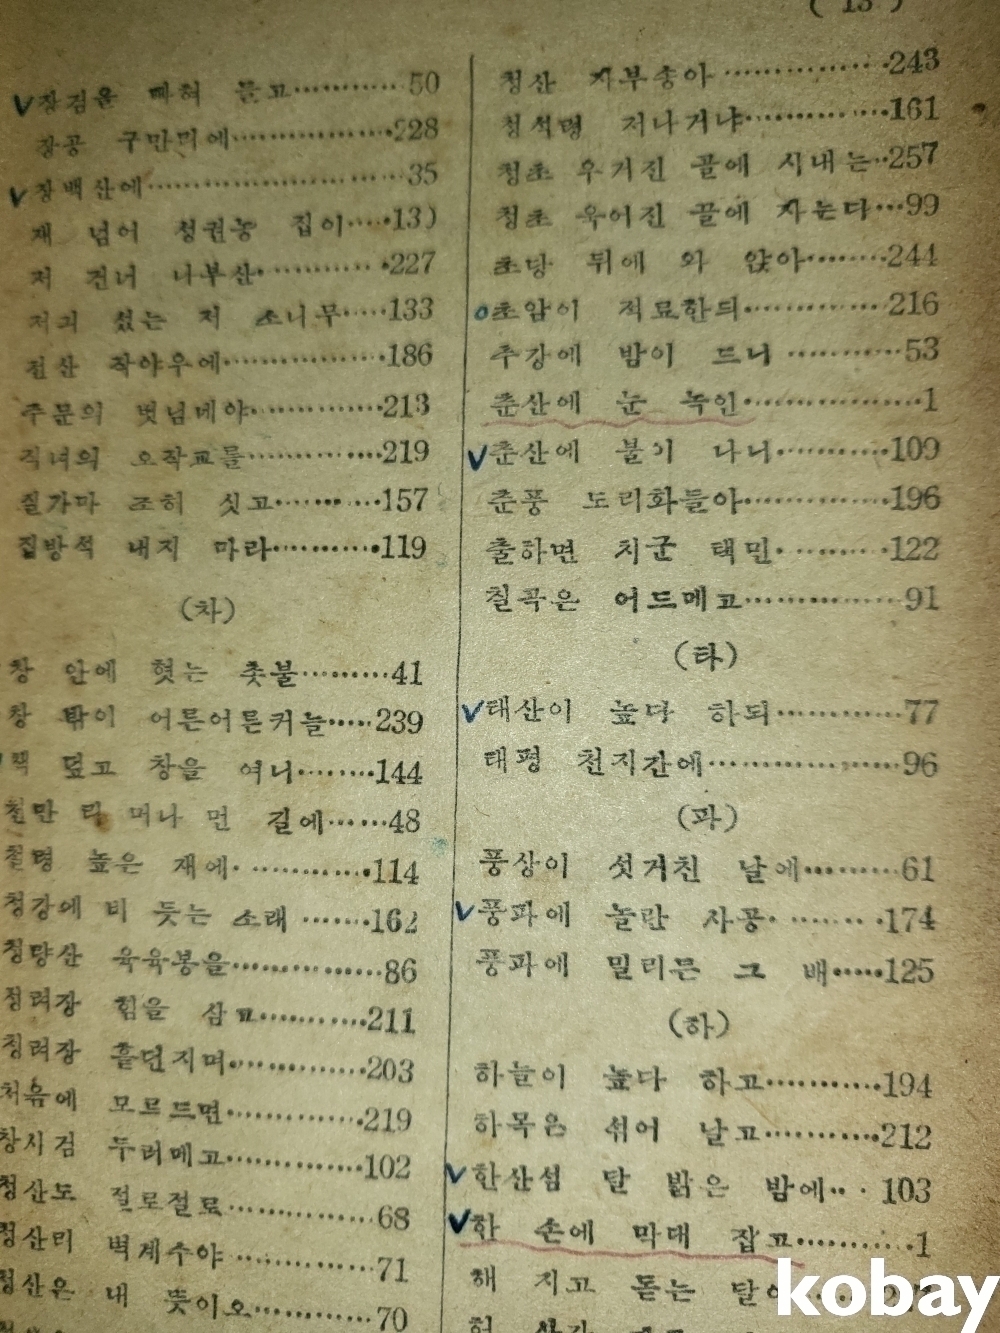 ( 13 )
장검을 빼혀 들고 50
장공 구만리에 228
장백산에 35
재 넘어 성권농 집이 13)
저 건너 나부산 227
저긔 섰는 저 소나무 133
전산 작야우에 186
주문의 벗님네야 213
직녀의 오작교를 219
질가마 조히 싯고 157
짚방석 내지 마라 119
(차)
창 안에 혓는 촛불 41
창 밖이 어른어른커늘 239
책 덮고 창을 여니 144
천만 리 머나 먼 길에 48
철령 높은 재에 114
청강에 비 듯는 소래 162
청량산 육육봉을 86
청려장 힘을 삼고 211
청려장 흩던지며 203
처음에 모르드면 219
창시검 두러메고 102
청산도 절로절로 68
청산리 벽계수야 71
청산은 내 뜻이오 70
청산 자부송아 243
청석령 지나거냐 161
청초 우거진 골에 시내는 257
청초 욱어진 골에 자는다 99
초당 뒤에 와 앉아 244
초암이 적료한듸 216
추강에 밤이 드니 53
춘산에 눈 녹인 1
춘산에 불이 나니 109
춘풍 도리화들아 196
출하면 치군 택민 122
칠곡은 어드메고 91
(타)
태산이 높다 하되 77
태평 천지간에 96
(파)
풍상이 섯거친 날에 61
풍파에 놀란 사공 174
풍파에 밀리든 그 배 125
(하)
하늘이 높다 하고 194
하목은 섞어 날고 212
한산섬 달 밝은 밤에 103
한 손에 막대 잡고 1
해 지고 돋는 달
kobay